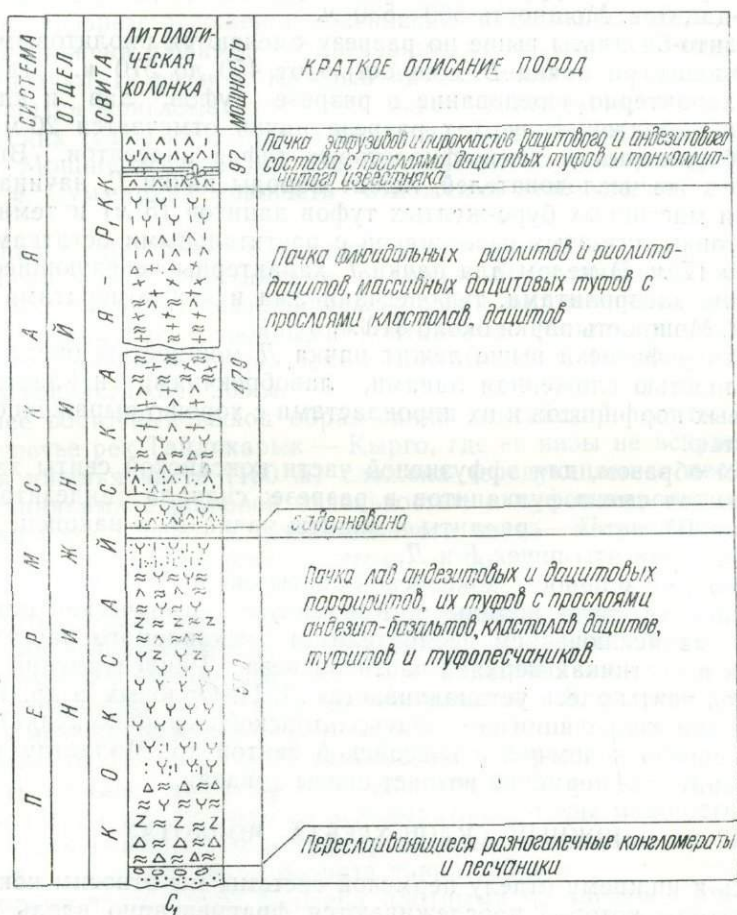 СИСТЕМА
ОТДЕЛ
СВИТА
ЛИТОЛОГИ-
ЧЕСКАЯ
КОЛОНКА
МОЩНОСТЬ
КРАТКОЕ ОПИСАНИЕ ПОРОД
ПЕРМСКАЯ
НИЖНИЙ
КОКСАЙСКАЯ - P₁kk
92
Пачка эффузивов и пирокластов дацитового и андезитового
состава с прослоями дацитовых туфов и тонкоплит-
чатого известняка
Пачка флюидальных риолитов и риолито-
дацитов, массивных дацитовых туфов с
прослоями кластолав, дацитов
470
Задерновано
Пачка лав андезитовых и дацитовых
порфиритов, их туфов с прослоями
андезит-базальтов, кластолав дацитов,
туфитов и туфопесчаников
Переслаивающиеся разногалечные конгломераты
и песчаники
C₁